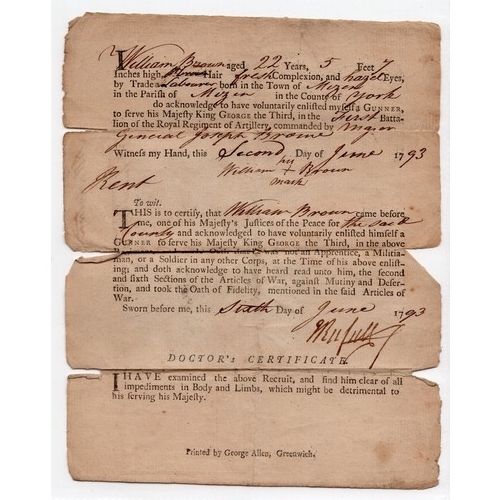 I William Brown aged 22 Years, 5 Feet 7
Inches high, Brown Hair fresh Complexion, and hazel Eyes,
by Trade a Labourer born in the Town of
in the Parish of in the County of York
do acknowledge to have voluntarily enlisted myself a GUNNER,
to serve his Majesty King GEORGE the Third, in the First Batta-
lion of the Royal Regiment of Artillery, commanded by Major
General Joseph Brome
WITNESS my Hand, this Second Day of June 1793
William his + Brown
mark
Kent
To wit.
THIS is to certify, that William Brown came before
me, one of his Majesty's Justices of the Peace for the said
County and acknowledged to have voluntarily enlisted himself a
GUNNER to serve his Majesty King GEORGE the Third, in the above
was not an Apprentice, a Militia-
man, or a Soldier in any other Corps, at the Time of his above enlist-
ing; and doth acknowledge to have heard read unto him, the second
and sixth Sections of the Articles of War, against Mutiny and Deser-
tion, and took the Oath of Fidelity, mentioned in the said Articles of
War.
Sworn before me, this Sixth Day of June 1793
DOCTOR's CERTIFICATE.
I HAVE examined the above Recruit, and find him clear of all
impediments in Body and Limbs, which might be detrimental to
his serving his Majesty.
Printed by George Allen, Greenwich.